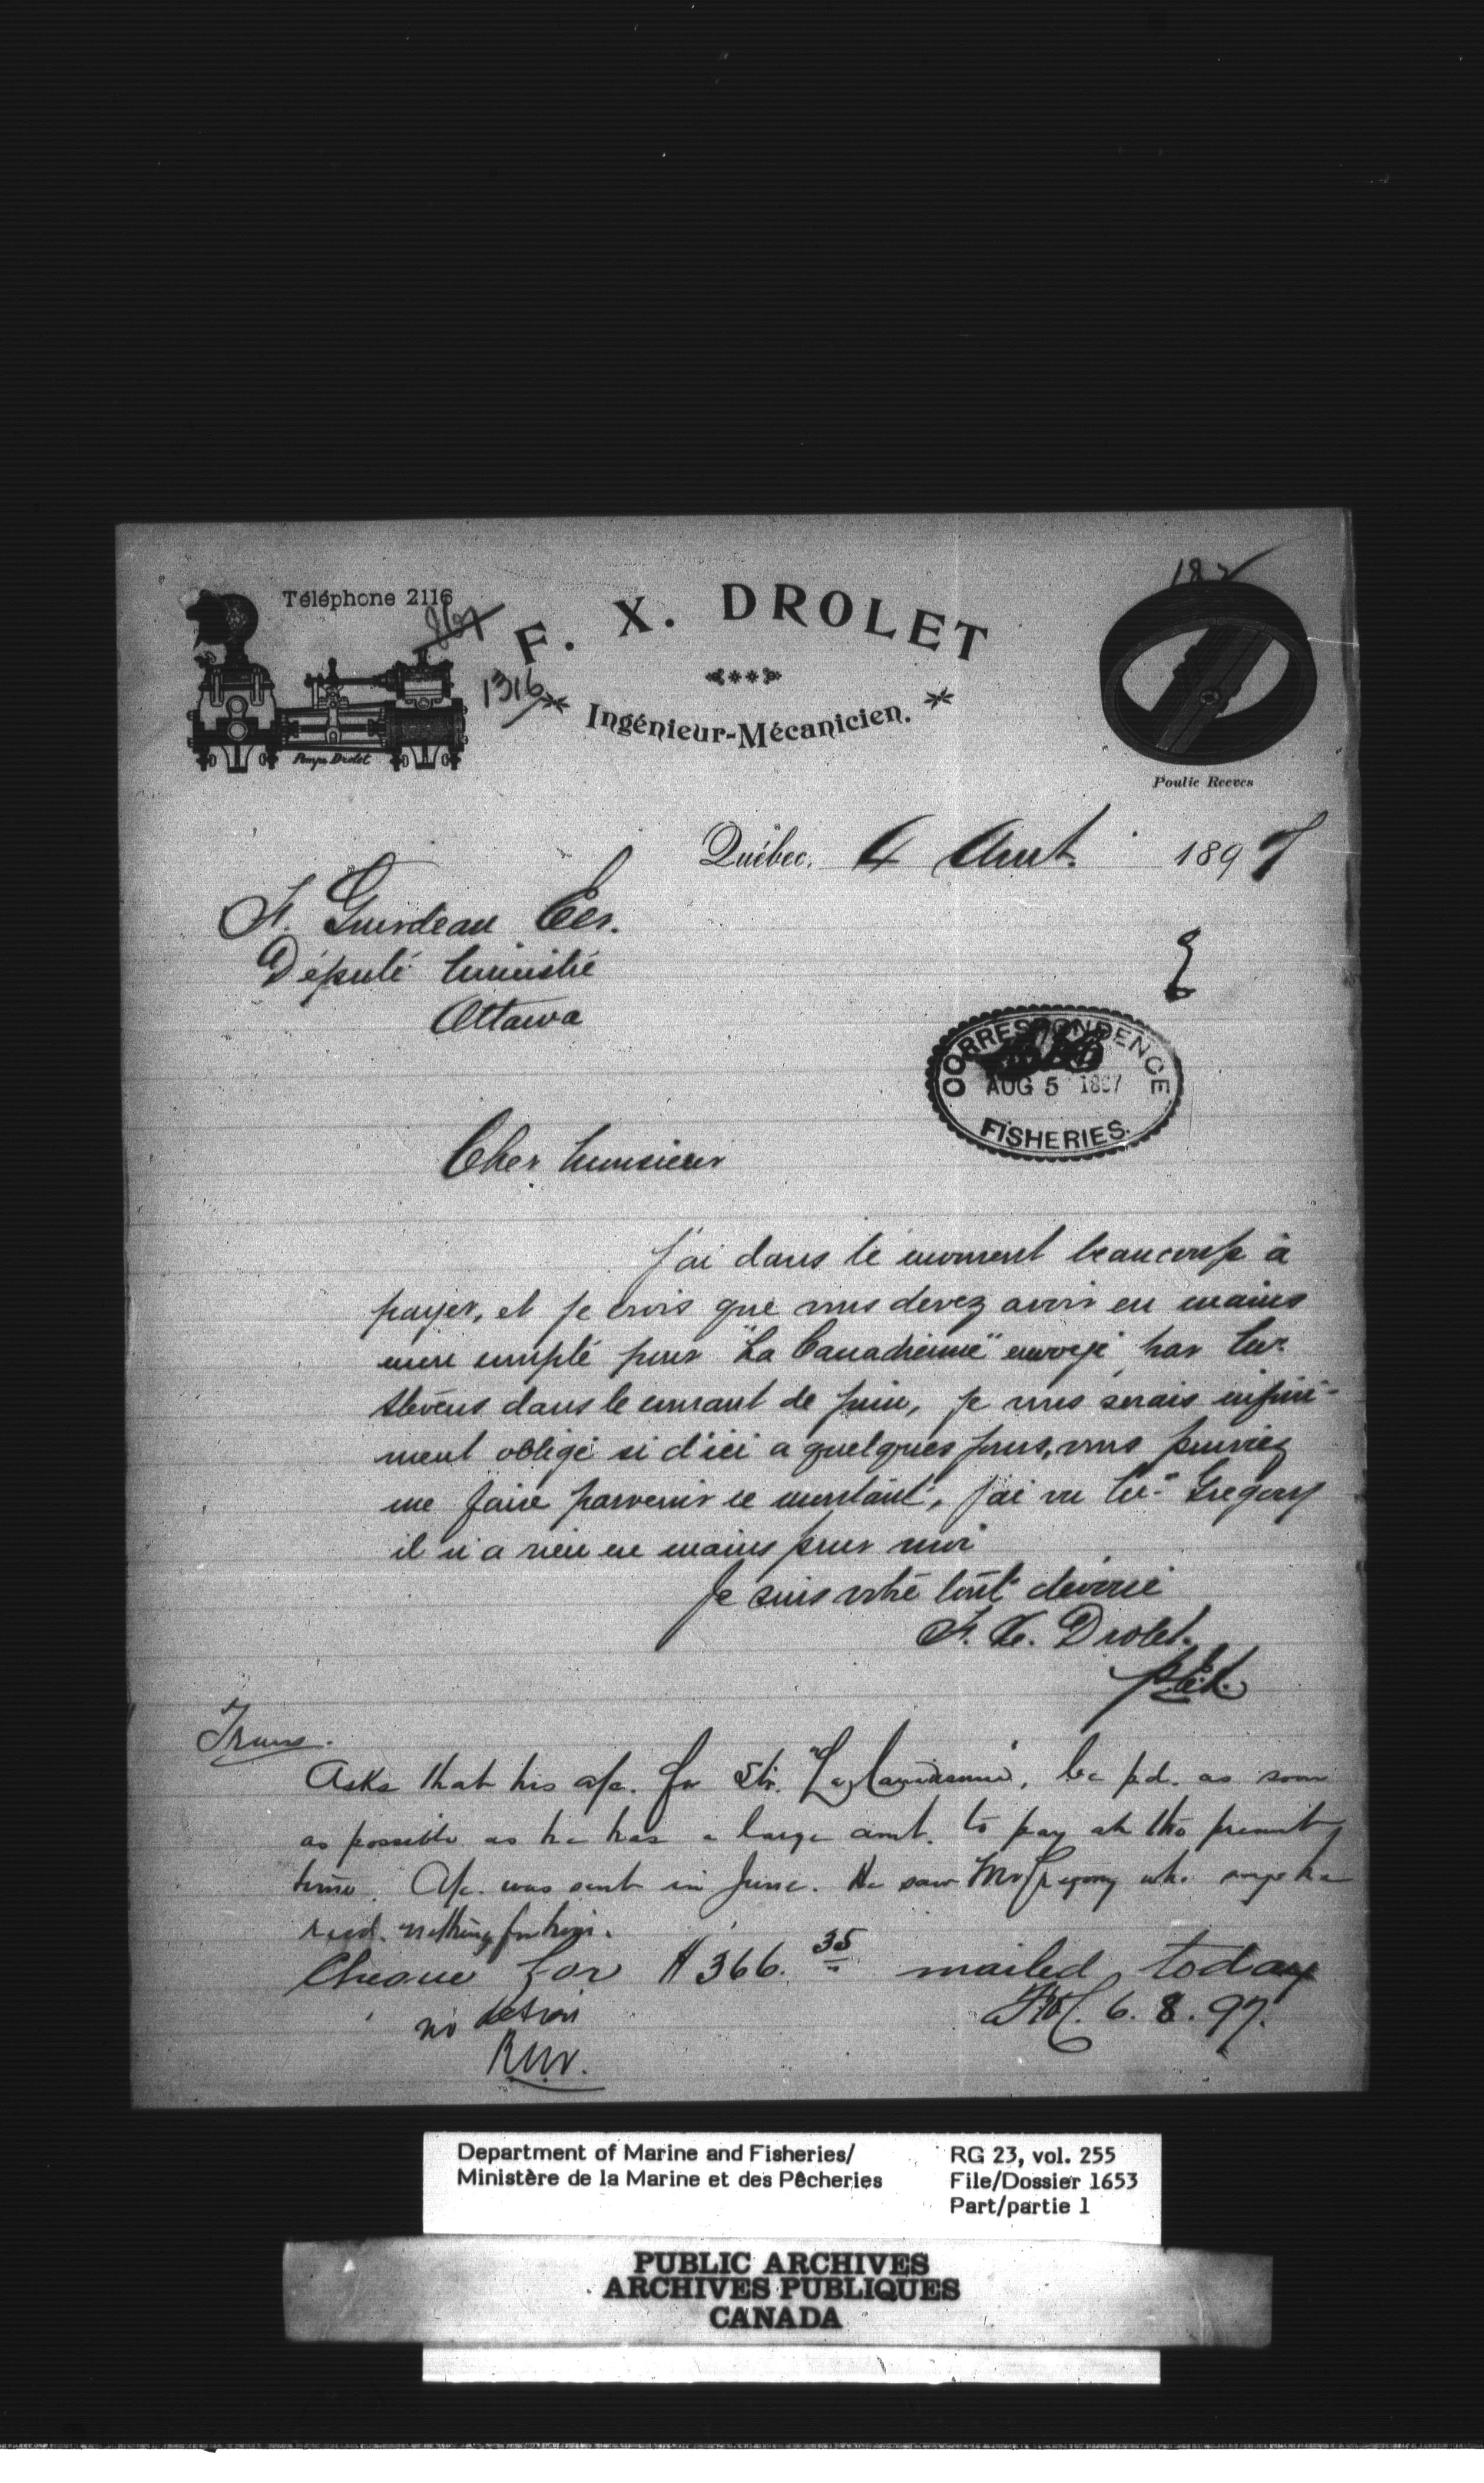 Téléphone 2116
1316
F. X. DROLET
Ingénieur-Mécanicien.
Pompe Drolet
Poulie Reeves
Québec, 4 Aout. 1897
F. Gourdeau Ecr.
Député ministre
Ottawa
CORRESPONDENCE
AUG 5 1897
FISHERIES.
Cher monsieur
J'ai dans le moment beaucoup à
payer, et je crois que vous devez avoir en mains
mon compte pour "La Canadienne" envoyé par Mr.
Stevens dans le courant de juin, je vous serais infini-
ment obligé si d'ici a quelques jours, vous pouviez
me faire parvenir ce montant, j'ai vu Mr. Gregory
il n'a rien en mains pour moi
Je suis votre tout dévoué
F. X. Drolet.
Trans.
Asks that his a/c. for Str. "La Canadienne", be pd. as soon
as possible as he has a large amt. to pay at the present
time. A/c. was sent in June. He saw Mr Gregory who says he
recd. nothing for him.
Cheque for $366.35 mailed today
6.8.97.
no action
Department of Marine and Fisheries/
Ministère de la Marine et des Pêcheries
RG 23, vol. 255
File/Dossier 1653
Part/partie 1
PUBLIC ARCHIVES
ARCHIVES PUBLIQUES
CANADA